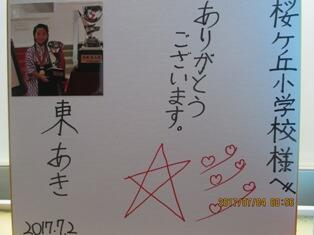 桜ケ丘小学校様へ
ありがとう
ございます。
東あき
2017.7.2
2017/07/04